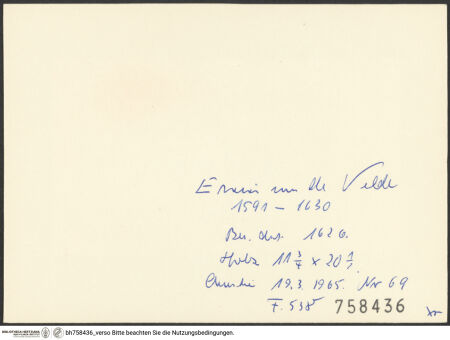 Esaias van de Velde
1591 – 1630
Bez. dat. 1626.
Holz 11 3/4 x 20 1/2
Christie 19.3.1965. Nr 69
F. 538
758436
BIBLIOTHECA HERTZIANA
bh758436_verso Bitte beachten Sie die Nutzungsbedingungen.